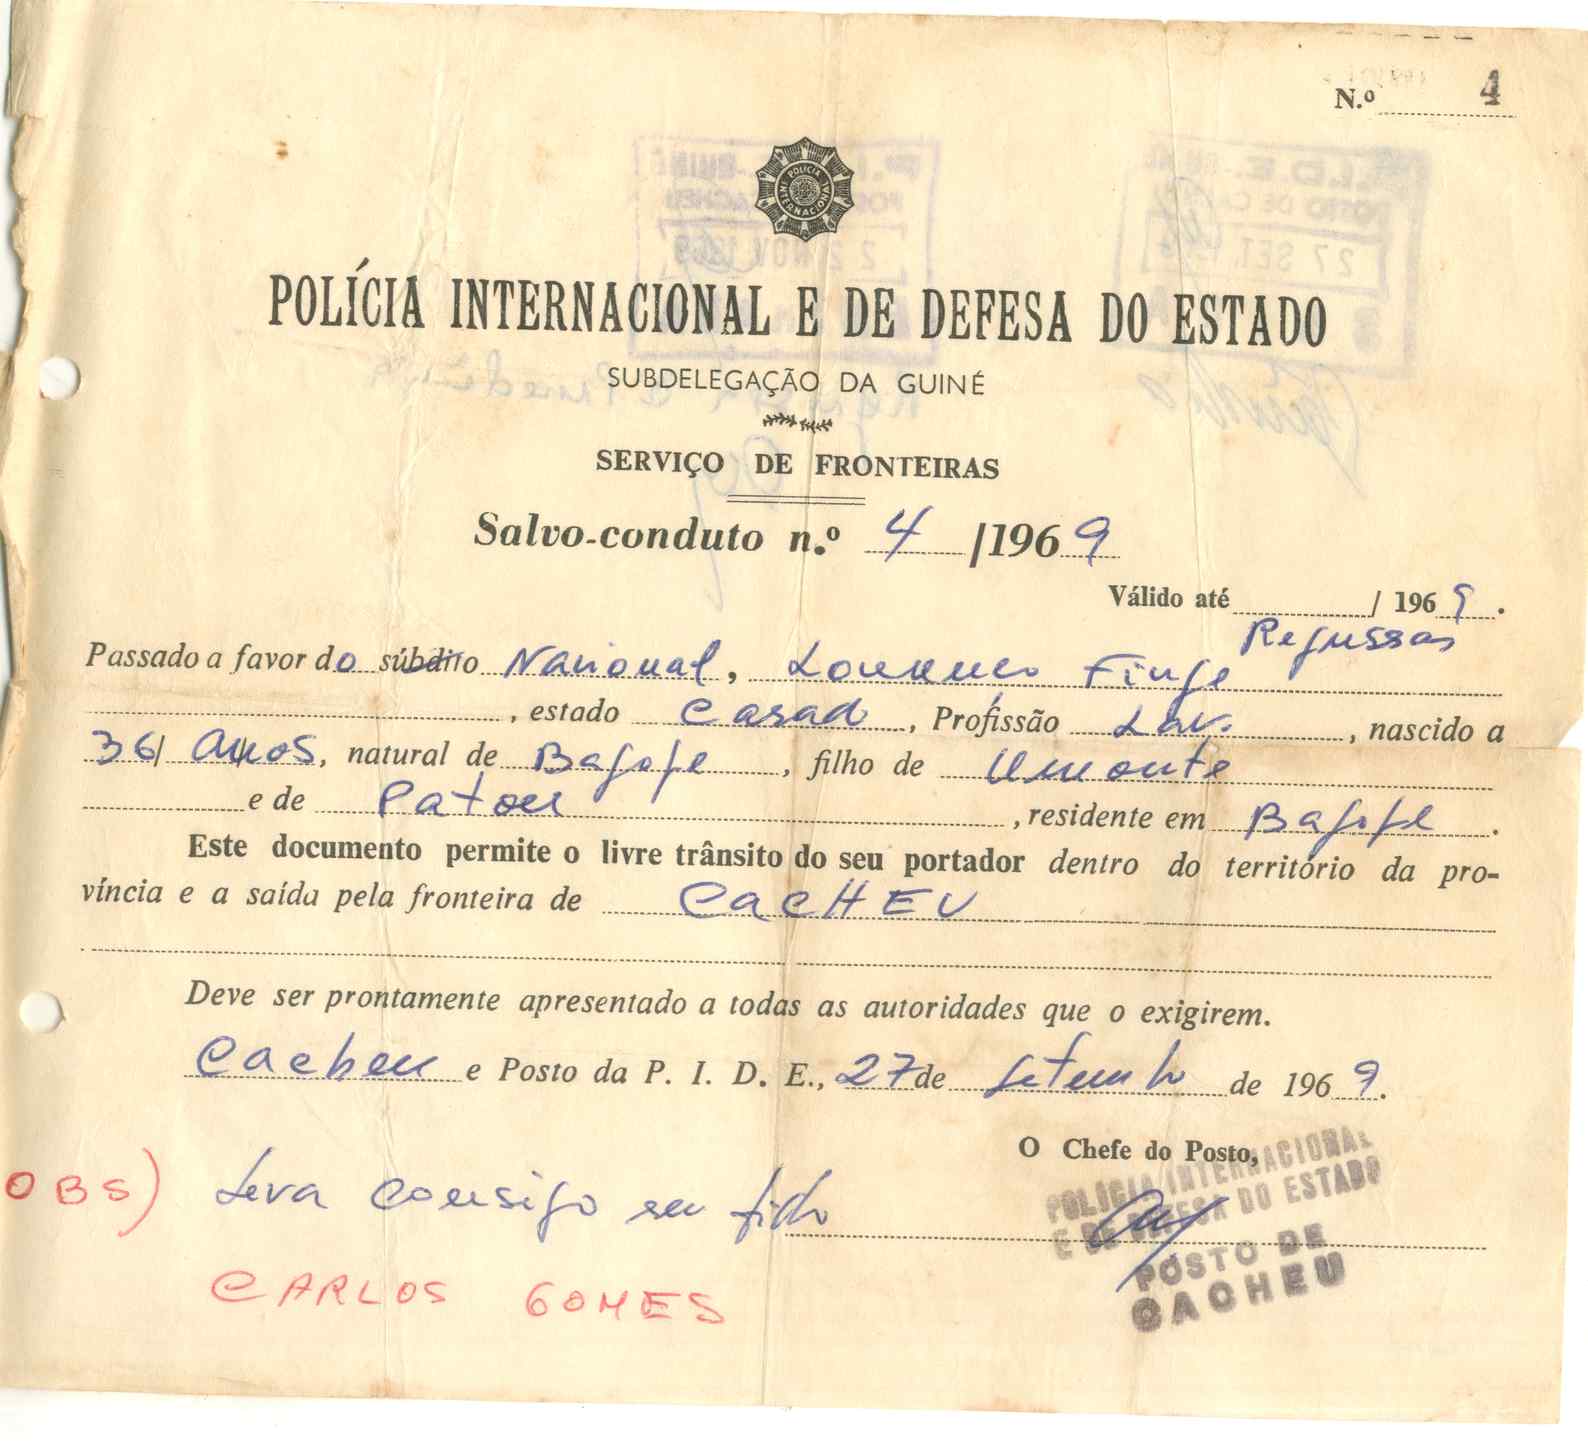 N.º 4
POLÍCIA INTERNACIONAL
POLÍCIA INTERNACIONAL E DE DEFESA DO ESTADO
SUBDELEGAÇÃO DA GUINÉ
SERVIÇO DE FRONTEIRAS
Salvo-conduto n.º 4 /1969
Válido até / 1969.
Passado a favor do súbdito Nacional, Lourenco
, estado Casado, Profissão Lav. , nascido a
36 Anos, natural de , filho de Umonte
e de Patou , residente em .
Este documento permite o livre trânsito do seu portador dentro do território da pro-
víncia e a saída pela fronteira de CACHEU
Deve ser prontamente apresentado a todas as autoridades que o exigirem.
Cacheu e Posto da P. I. D. E., 27 de Setembro de 1969.
O Chefe do Posto,
POLÍCIA INTERNACIONAL
E DE DEFESA DO ESTADO
POSTO DE
CACHEU
OBS) Leva consigo seu filho
CARLOS GOMES